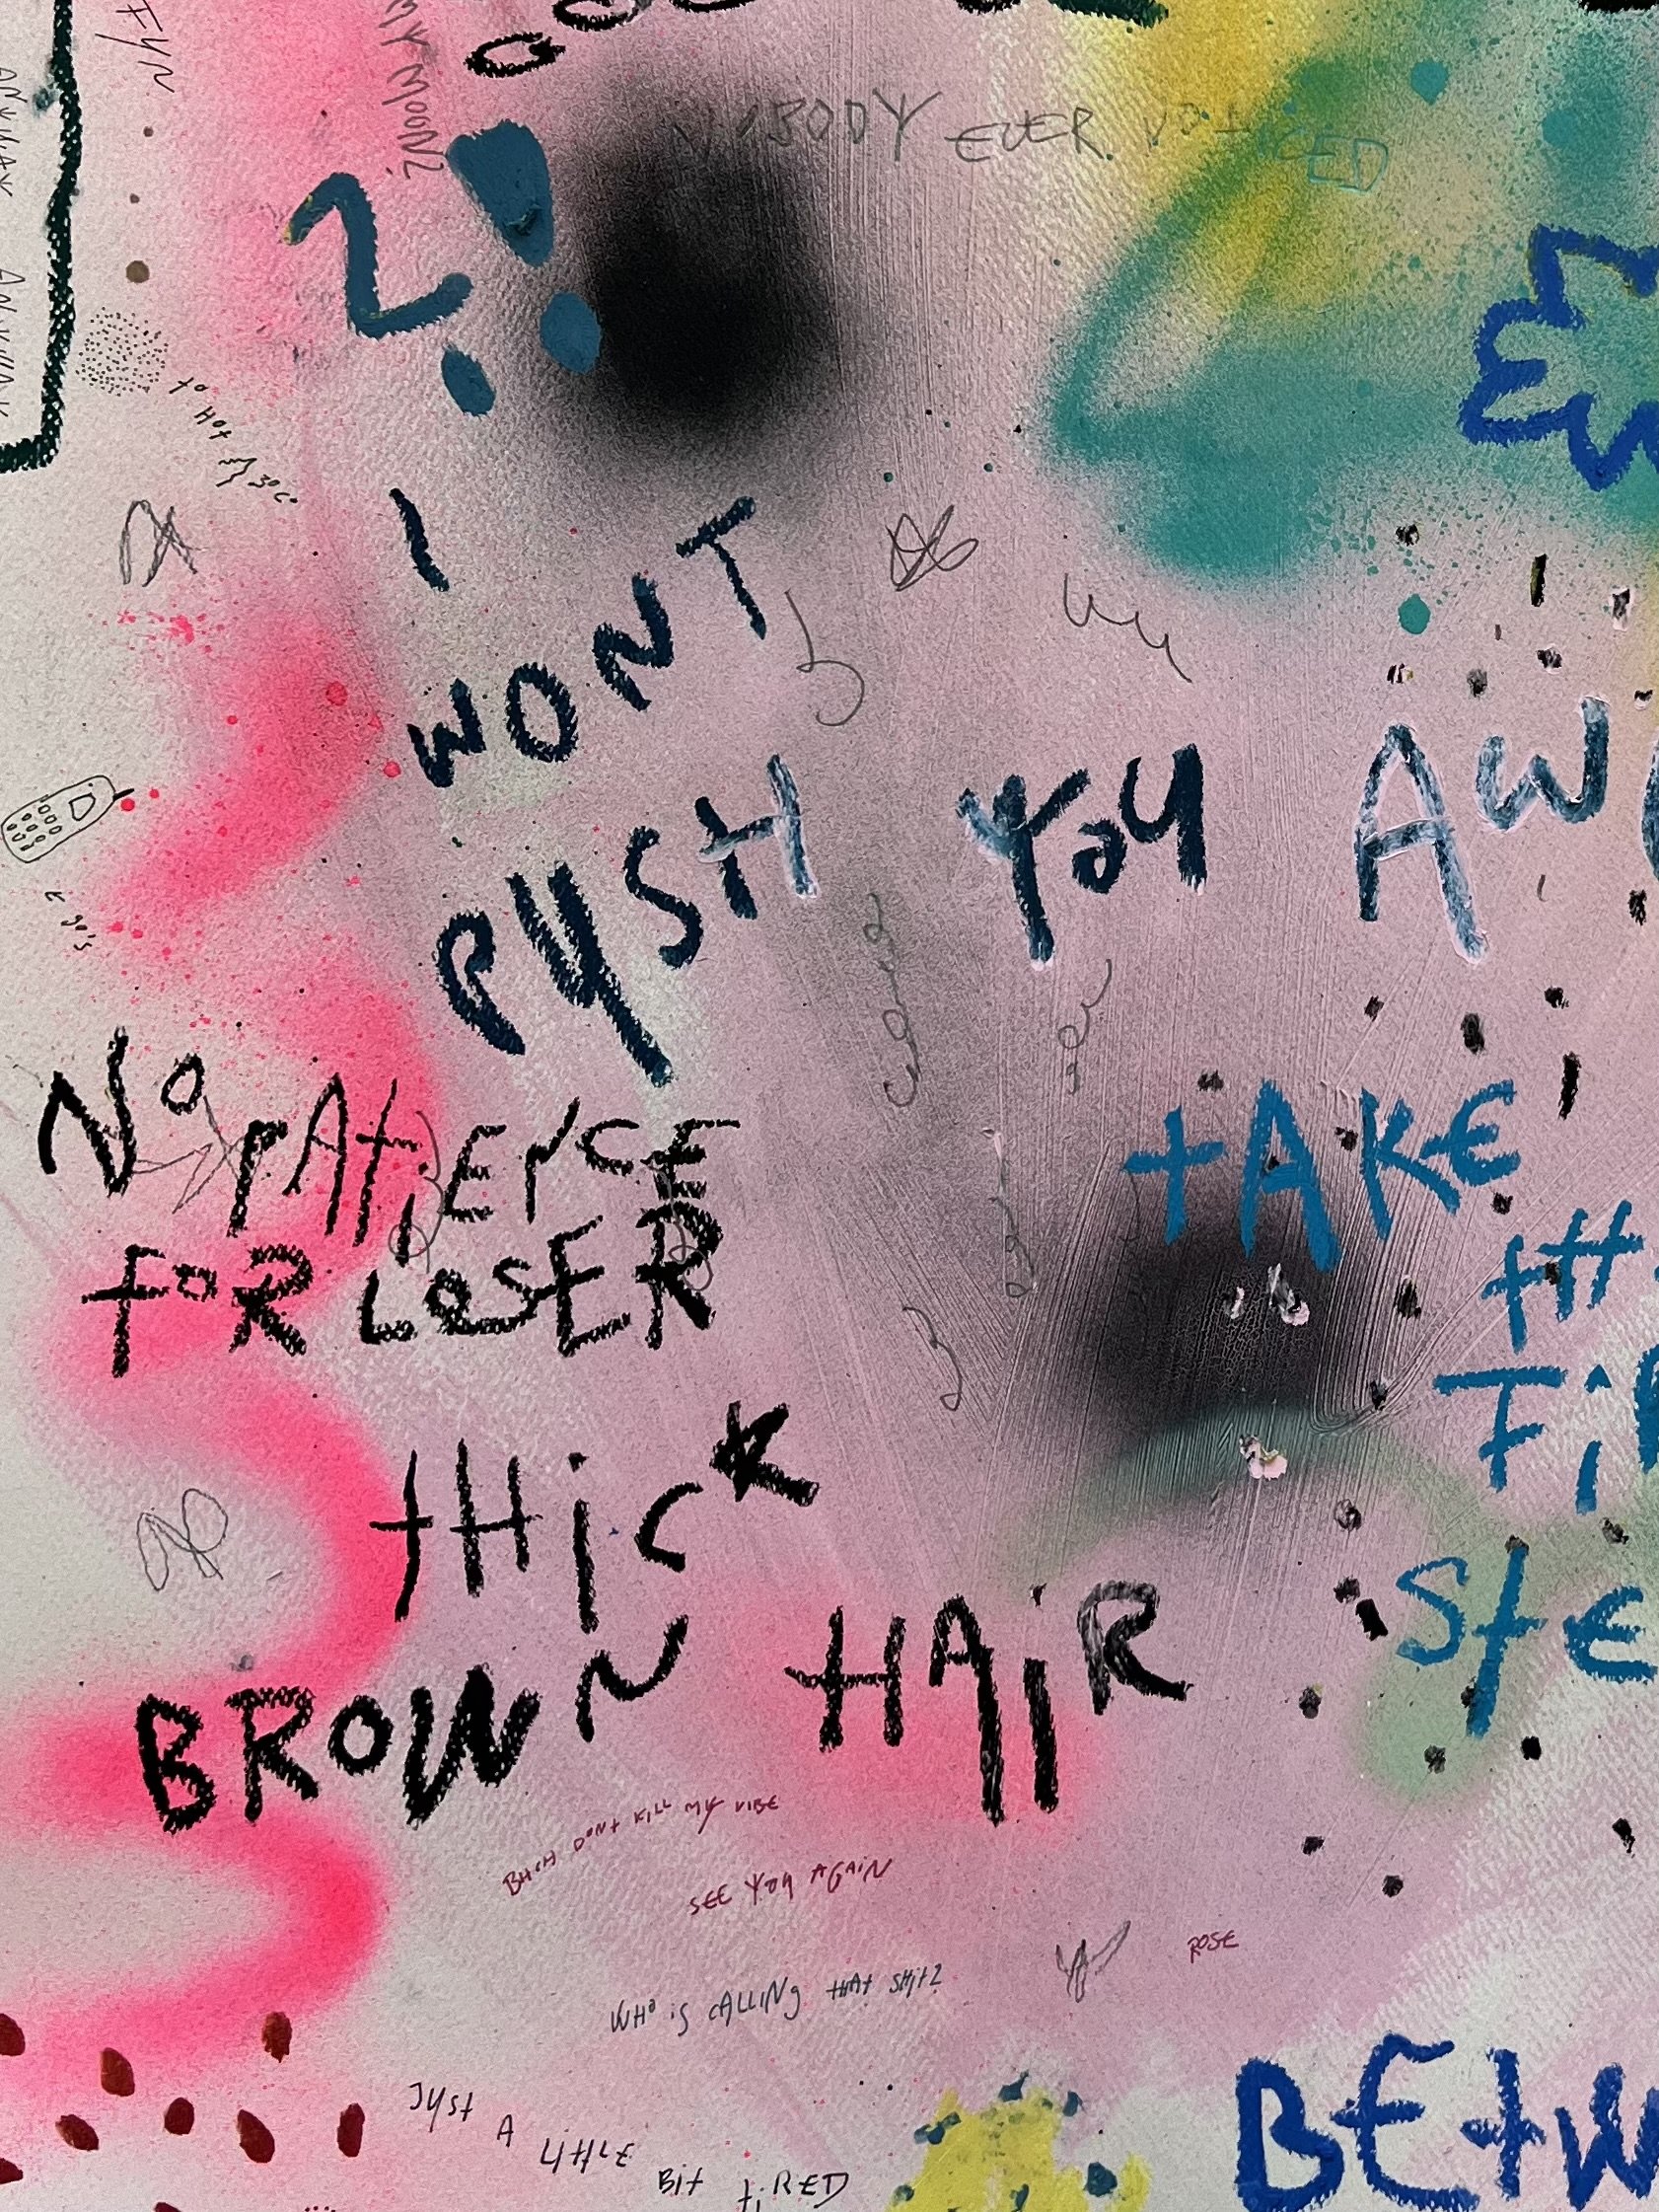 FYN
MY MOON?
NOBODY EVER NOTICED
ANYWAY ANYWAY
?!
to HOT
30C°
I
WONT
PYSH YOY AW
EgO'S
NO PATIENCE
FOR LOSER
tAKE
tH
Fi
StE
tHiCK
BROWN HAIR
BitCH DONt KILL MY VIBE
SEE YOY AGAiN
ROSE
WHO iS CALLiNg tHAt SHit?
JYSt A LittLE Bit tiRED
BEtW